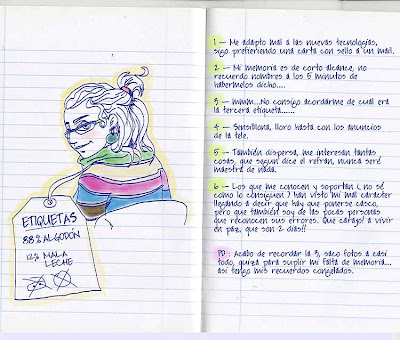 ETIQUETAS
88% ALGODÓN
12% MALA
LECHE
1 - Me adapto mal a las nuevas tecnologías,
sigo prefiriendo una carta con sello a un mail.
2 - Mi memoria es de corto alcance, no
recuerdo nombres a los 5 minutos de
habermelos dicho....
3 - mmm...No consigo acordarme de cual era
la tercera etiqueta......
4 - Sensiblona, lloro hasta con los anuncios
de la tele.
5 - También dispersa, me interesan tantas
cosas, que segun dice el refran, nunca seré
maestra de nada.
6 - Los que me conocen y soportan ( no sé
como lo consiguen ) han visto mi mal carácter
llegando a decir que hay que ponerse casco,
pero que también soy de las pocas personas
que reconocen sus errores. Que carajo! a vivir
en paz, que son 2 dias!!
PD : Acabo de recordar la 3, saco fotos a casi
todo, quizá para suplir mi falta de memoria...
asi tengo mis recuerdos congelados.